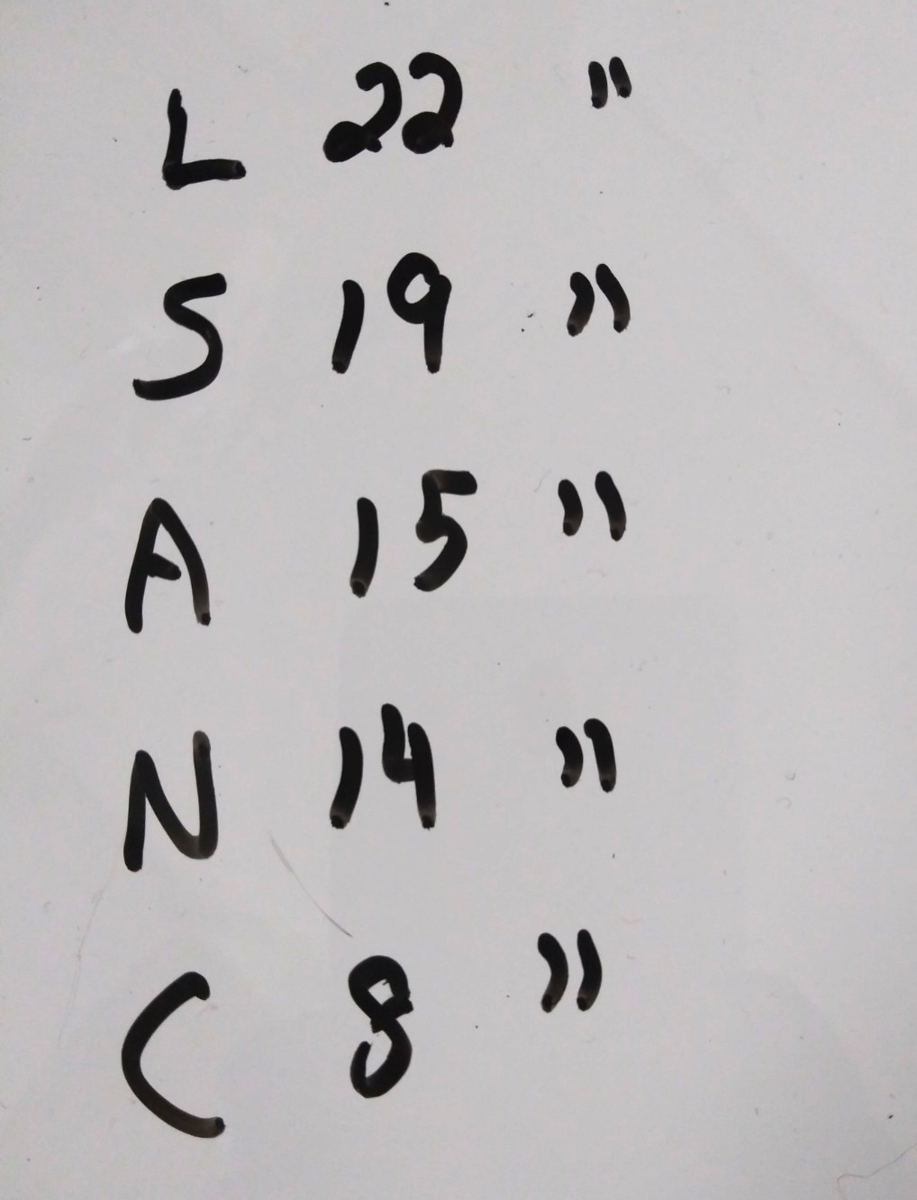 L 22 "
S 19 "
A 15 "
N 14 "
C 8 "